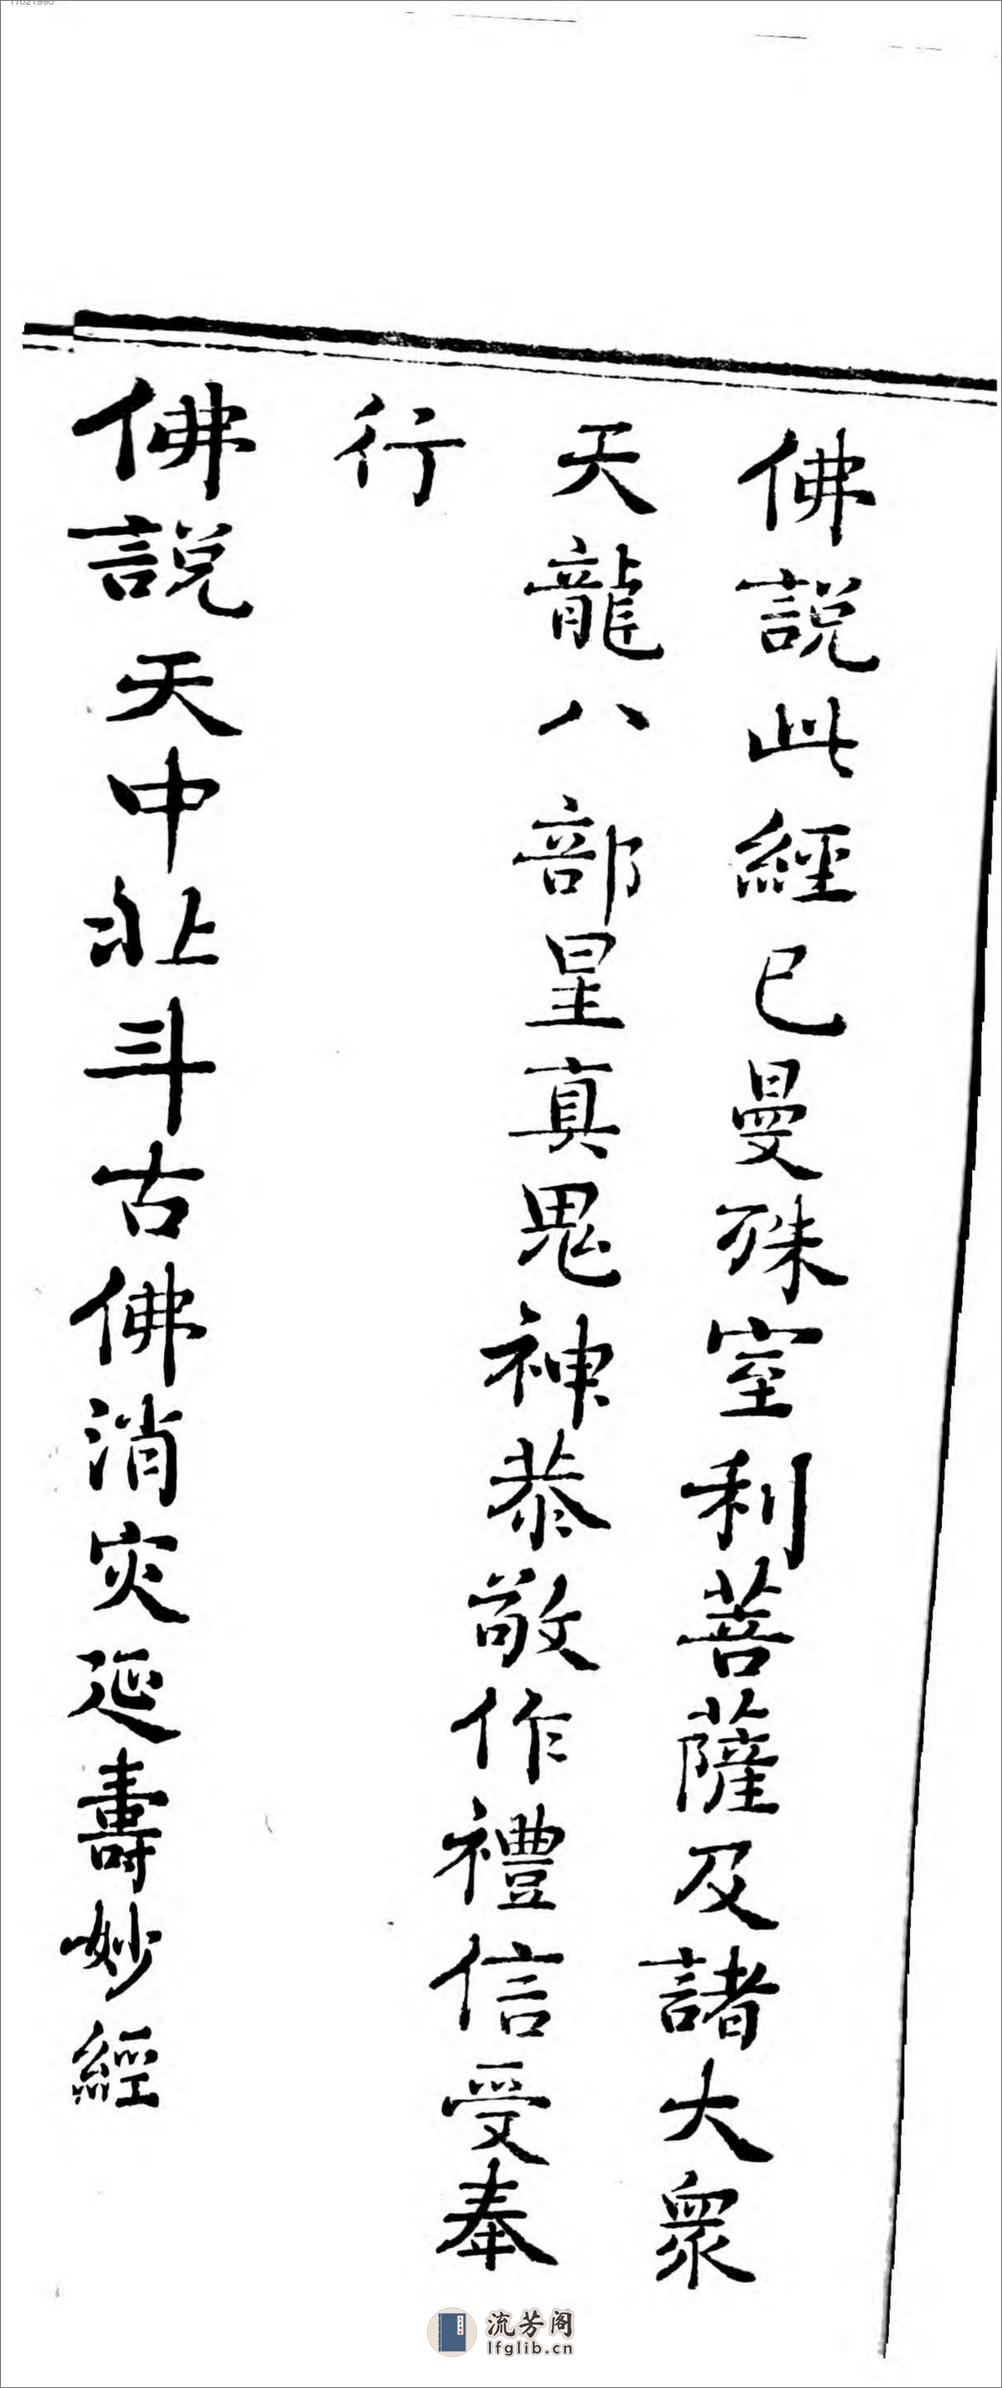 佛説此經已曼殊室利菩薩及諸大衆
天龍八部星真鬼神恭敬作禮信受奉
行
佛説天中北斗古佛消灾延壽妙經
流芳阁
lfglib.cn